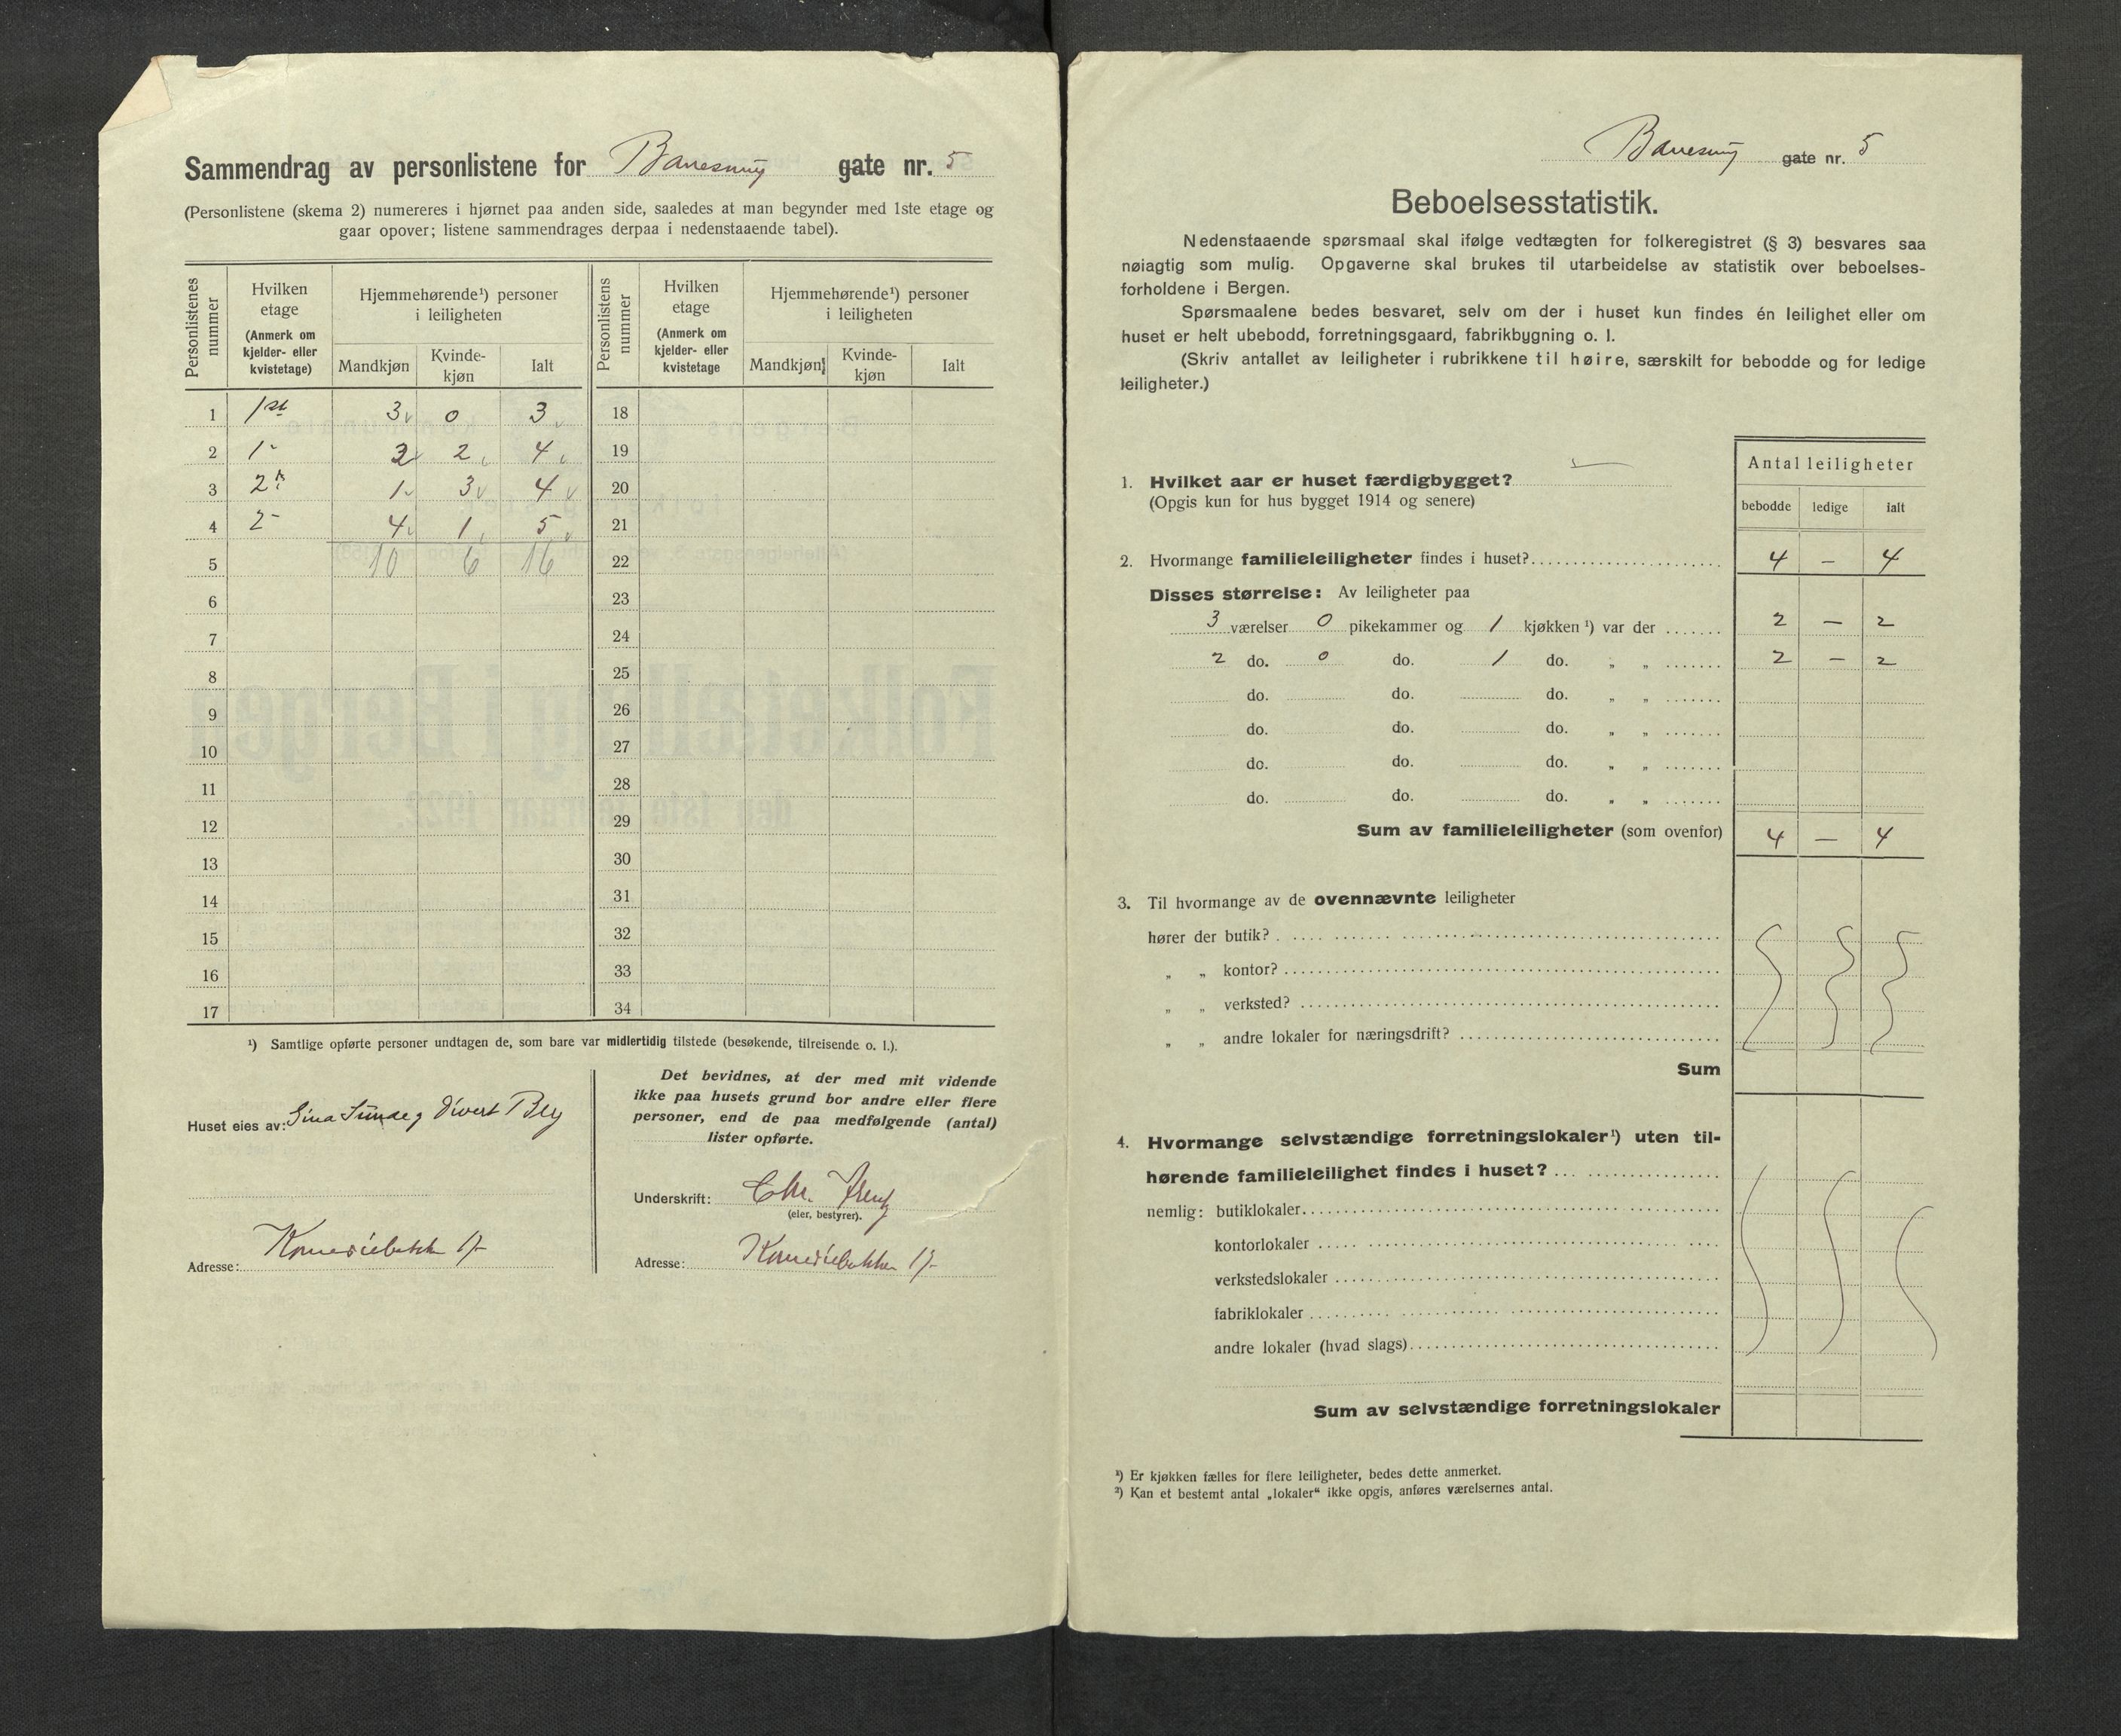 Sammendrag av personlistene for Banesvig gate nr. 5
(Personlistene (skema 2) numereres i hjørnet paa anden side, saaledes at man begynder med 1ste etage og
gaar opover; listene sammendrages derpaa i nedenstaaende tabel).
Personlistenes nummer
Hvilken etage (Anmerk om kjelder- eller kvistetage)
Hjemmehørende¹) personer i leiligheten
Mandkjøn Kvinde-kjøn Ialt
Personlistens nummer
Hvilken etage (Anmerk om kjelder- eller kvistetage
Hjemmehørende¹) personer i leiligheten
Mandkjøn Kvinde-kjøn Ialt
1 1ste 3 0 3 18
2 1- 2 2 4 19
3 2n 1 3 4 20
4 2- 4 1 5 21
5 10 6 16 22
6 23
7 24
8 25
9 26
10 27
11 28
12 29
13 30
14 31
15 32
16 33
17 34
¹) Samtlige opførte personer undtagen de, som bare var midlertidig tilstede (besøkende, tilreisende o. l.).
Huset eies av: Sina Sunde, Sivert Bly
Adresse: Komediebakken 17
Det bevidnes, at der med mit vidende
ikke paa husets grund bor andre eller flere
personer, end de paa medfølgende (antal)
lister opførte.
Underskrift: Chr.
(eier, bestyrer).
Adresse: Komediebakken 17
Banesvig gate nr. 5
Beboelsesstatistik.
Nedenstaaende spørsmaal skal ifølge vedtægten for folkeregistret (§ 3) besvares saa
nøiagtig som mulig. Opgaverne skal brukes til utarbeidelse av statistik over beboelses-
forholdene i Bergen.
Spørsmaalene bedes besvaret, selv om der i huset kun findes én leilighet eller om
huset er helt ubebodd, forretningsgaard, fabrikbygning o. l.
(Skriv antallet av leiligheter i rubrikkene til høire, særskilt for bebodde og for ledige
leiligheter.)
Antal leiligheter
bebodde ledige ialt
1. Hvilket aar er huset færdigbygget? —
(Opgis kun for hus bygget 1914 og senere)
2. Hvormange familieleiligheter findes i huset? 4 — 4
Disses størrelse: Av leiligheter paa
3 værelser 0 pikekammer og 1 kjøkken ¹) var der 2 — 2
2 do. 0 do. 1 do. „ „ 2 — 2
do. do. do. „ „
do. do. do. „ „
do. do. do. „ „
do. do. do. „ „
Sum av familieleiligheter (som ovenfor) 4 — 4
3. Til hvormange av de ovennævnte leiligheter
hører der butik?
„ „ kontor?
„ „ verksted?
„ „ andre lokaler for næringsdrift?
Sum
4. Hvormange selvstændige forretningslokaler¹) uten til-
hørende familieleilighet findes i huset?
nemlig: butiklokaler
kontorlokaler
verkstedslokaler
fabriklokaler
andre lokaler (hvad slags)
Sum av selvstændige forretningslokaler
¹) Er kjøkken fælles for flere leiligheter, bedes dette anmerket.
²) Kan et bestemt antal „lokaler“ ikke opgis, anføres værelsernes antal.